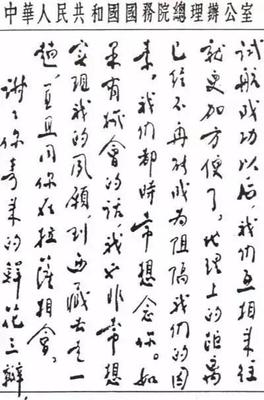 中華人民共和國國務院總理辦公室
试航成功以后，我们互相来往
就更加方便了。地理上的距离
已经不再能成为阻隔我们的因
素。我们都时常想念你。如
果有机会的话，我也非常想
实现我的夙愿，到西藏去走一
趟，并且同你在拉萨相会。
谢谢你寄来的鲜花三瓣